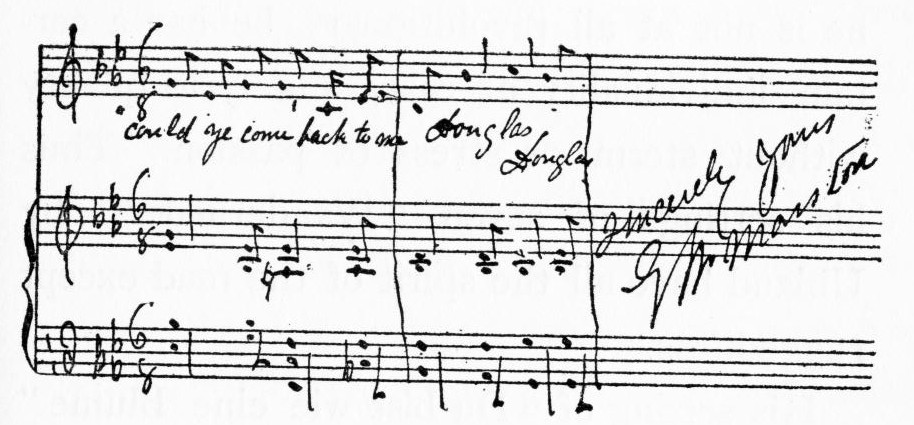 6
8
could ye come back to me Douglas
Douglas
6
8
Sincerely Yours
G W Marston
6
8